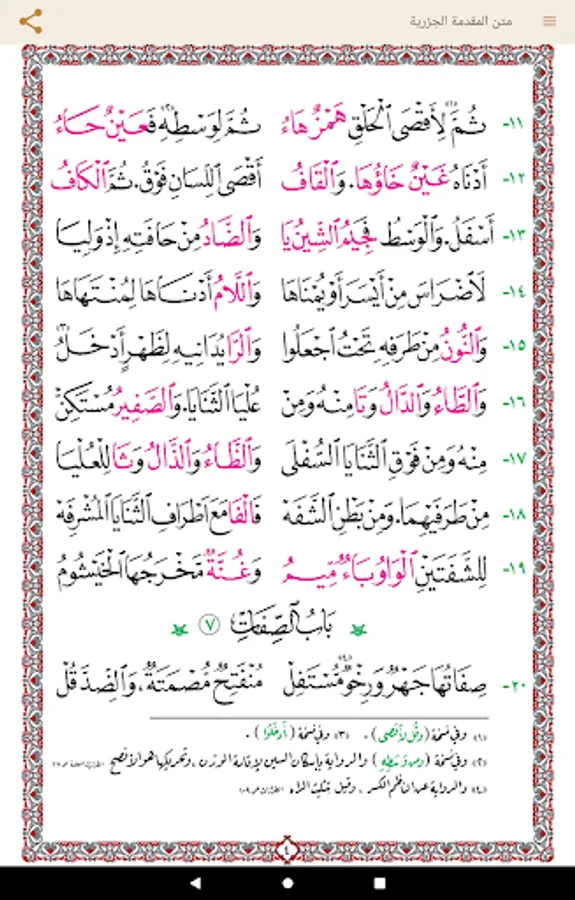 متن المقدمة الجزرية
١١- ثُمَّ لِأَقْصَى الْحَلْقِ هَمْزٌ هَاءُ ثُمَّ لِوَسْطِهِ فَعَيْنٌ حَاءُ
١٢- أَدْنَاهُ غَيْنٌ خَاؤُهَا. وَالْقَافُ أَقْصَى اللِّسَانِ فَوْقُ. ثُمَّ الْكَافُ
١٣- أَسْفَلُ. وَالْوَسْطُ فَجِيمُ الشِّينُ يَا وَالضَّادُ مِنْ حَافَتِهِ إِذْ وَلِيَا
١٤- لَاضْرَاسَ مِنْ أَيْسَرَ أَوْ يُمْنَاهَا وَاللَّامُ أَدْنَاهَا لِمُنْتَهَاهَا
١٥- وَالنُّونُ مِنْ طَرَفِهِ تَحْتُ اجْعَلُوا وَالرَّا يُدَانِيهِ لِظَهْرٍ أَدْخَلُ
١٦- وَالطَّاءُ وَالدَّالُ وَتَا مِنْهُ وَمِنْ عُلْيَا الثَّنَايَا. وَالصَّفِيرُ مُسْتَكِنْ
١٧- مِنْهُ وَمِنْ فَوْقِ الثَّنَايَا السُّفْلَى وَالظَّاءُ وَالذَّالُ وَثَا لِلْعُلْيَا
١٨- مِنْ طَرَفَيْهِمَا. وَمِنْ بَطْنِ الشَّفَهْ فَالْفَا مَعَ اطْرَافِ الثَّنَايَا الْمُشْرِفَهْ
١٩- لِلشَّفَتَيْنِ الْوَاوُ بَاءٌ مِيمُ وَغُنَّةٌ مَخْرَجُهَا الْخَيْشُومُ
بَابُ الصِّفَاتِ ٧
٢٠- صِفَاتُهَا جَهْرٌ وَرِخْوٌ مُسْتَفِلْ مُنْفَتِحٌ مُصْمَتَةٌ، وَالضِّدَّ قُلْ
(١) وفي نسخة (وقل لأقصى). (٣) وفي نسخة (أدخلوا).
(٢) وفي نسخة (ومن وسطه) والرواية بإسكان السين لإقامة الوزن، وتحريكها هو الأفصح
(٤) والرواية عندنا
٤